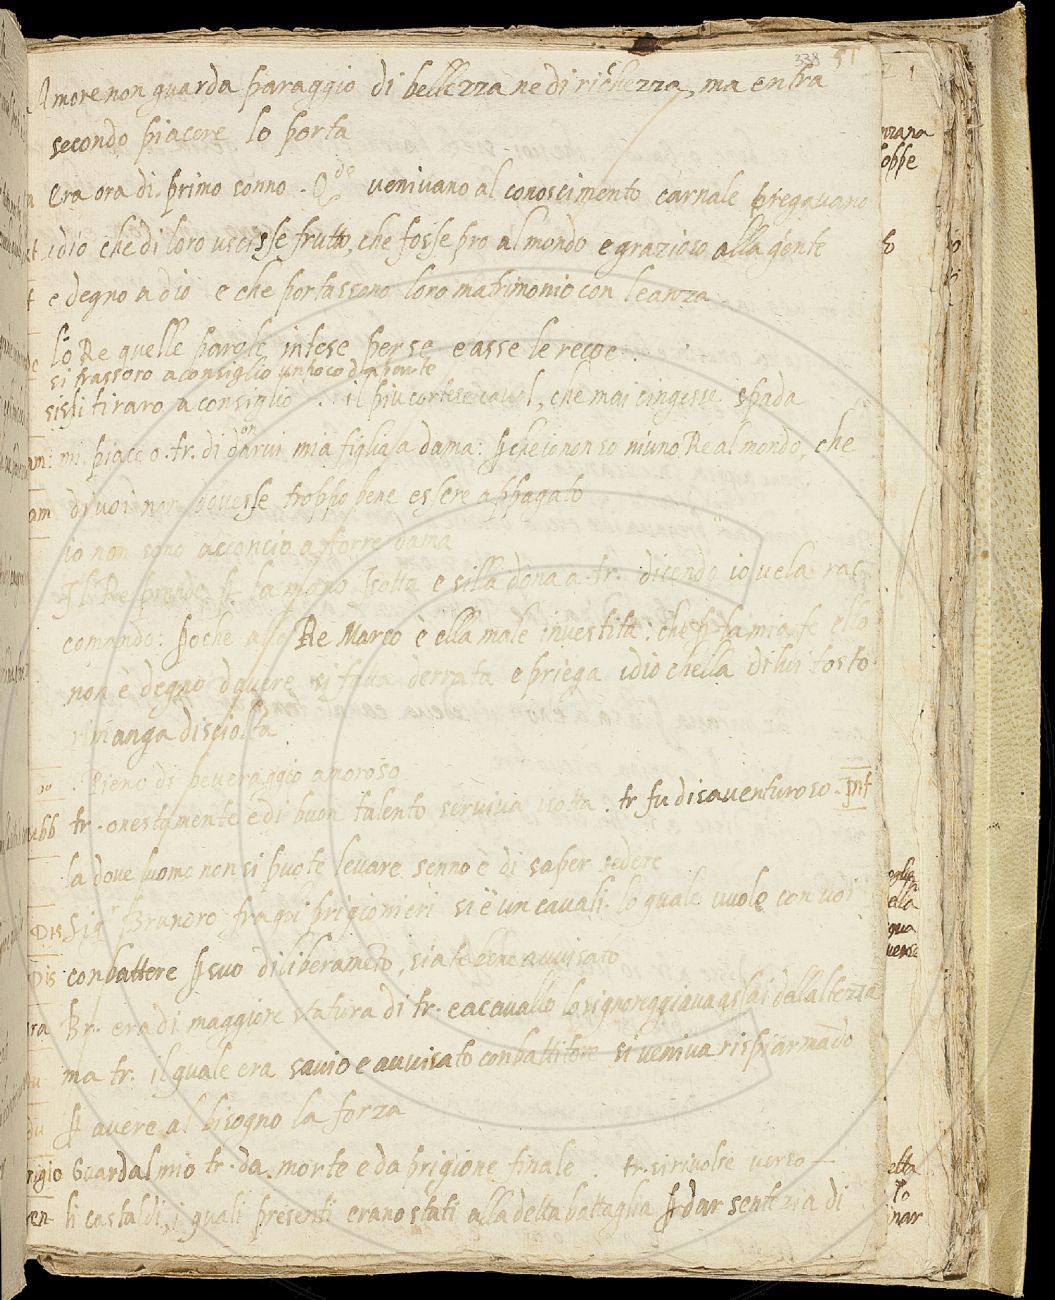 338 51
Amore non guarda paraggio di bellezza ne di richezza, ma entra
secondo piacere lo porta
Era ora di primo sonno . Q.do venivano al conoscimento carnale pregavano
idio che di loro uscisse frutto, che fosse pro al mondo e grazioso alla gente
e degno a dio e che portassono loro matrimonio con leanza
Lo Re quelle parole intese per se e asse le recoe .
si trassoro a consiglio un poco da parte
sisfi tiraro a consiglio . il piu cortese caval, che mai cingesse spada
mi piace o . tr. di donarvi mia figliuola dama : che io non so niuno Re al mondo, che
di voi non dovesse troppo bene essere appagato
io non sono acconcio a torre dama
Il Re prende la mano Isotta e silla dona a . tr. dicendo io vela rac
comando : che allo Re Marco è ella male investita : che la mia fe ello
non è degno davere si fatta derrata e priega idio chella di lui tosto
rimanga disciolta
Pieno di beveraggio amoroso
tr. onestamente e di buon talento serviva isotta . tr fu disaventuroso .
la dove luomo non si puote levare senno è di saper sedere
Sig.r Brunoro fra qoi prigionieri si è un cavali. lo quale vuole con voi
conbattere suo diliberameto, siate bene avvisato
Br. era di maggiore statura di tr. e a cavallo lo signoreggiava assai dellaltezza
ma tr. il quale era savio e avvisato conbattitore si veniva rispiarmado
avere al bisogno la forza
Guardal mio tr. da morte e da prigione finale . tr. si rivolse verso —
li castaldi, i quali presenti erano stati alla detta battaglia dar sentezia di